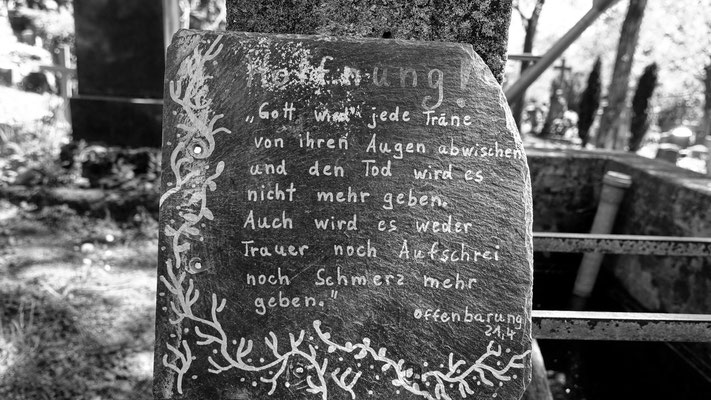 Hoffnung!
„Gott wird jede Träne
von ihren Augen abwischen
und den Tod wird es
nicht mehr geben.
Auch wird es weder
Trauer noch Aufschrei
noch Schmerz mehr
geben."
Offenbarung
21,4